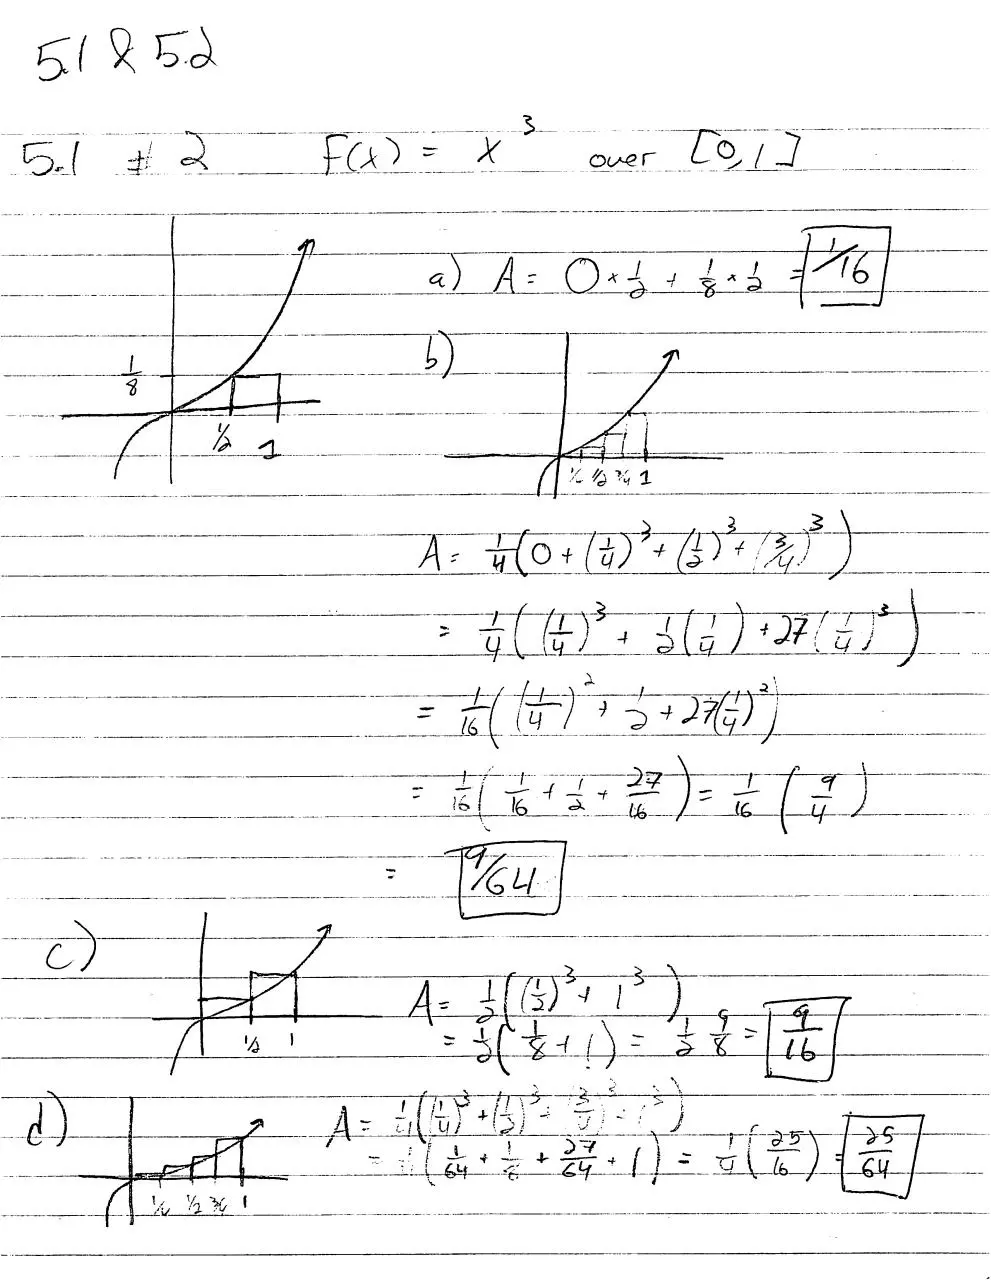 5.1 & 5.2
5.1 # 2 F(x) = x³ over [0,1]
1/8
1/2 1
a) A = 0 × 1/2 + 1/8 × 1/2 = 1/16
b)
1/4 1/2 3/4 1
A = 1/4(0 + (1/4)³ + (1/2)³ + (3/4)³)
= 1/4((1/4)³ + 1/2(1/4) + 27(1/4)³)
= 1/16((1/4)² + 1/2 + 27(1/4)²)
= 1/16(1/16 + 1/2 + 27/16) = 1/16 (9/4)
= 9/64
c)
1/2 1
A = 1/2((1/2)³ + 1³)
= 1/2(1/8 + 1) = 1/2 9/8 = 9/16
d)
1/4 1/2 3/4 1
A = 1/4((1/4)³ + (1/2)³ + (3/4)³ + 1³)
= 1/4(1/64 + 1/8 + 27/64 + 1) = 1/4(25/16) = 25/64